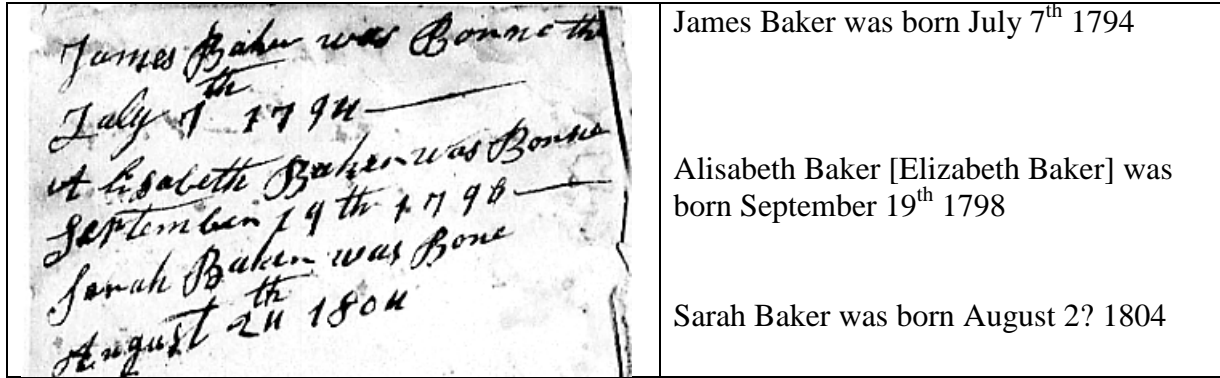 James Baker was Bonne the
July 7th 1794
Alisabeth Baker was Bonne
September 19th 1798
Sarah Baker was Bone
August 24th 1804
James Baker was born July 7th 1794
Alisabeth Baker [Elizabeth Baker] was
born September 19th 1798
Sarah Baker was born August 2? 1804